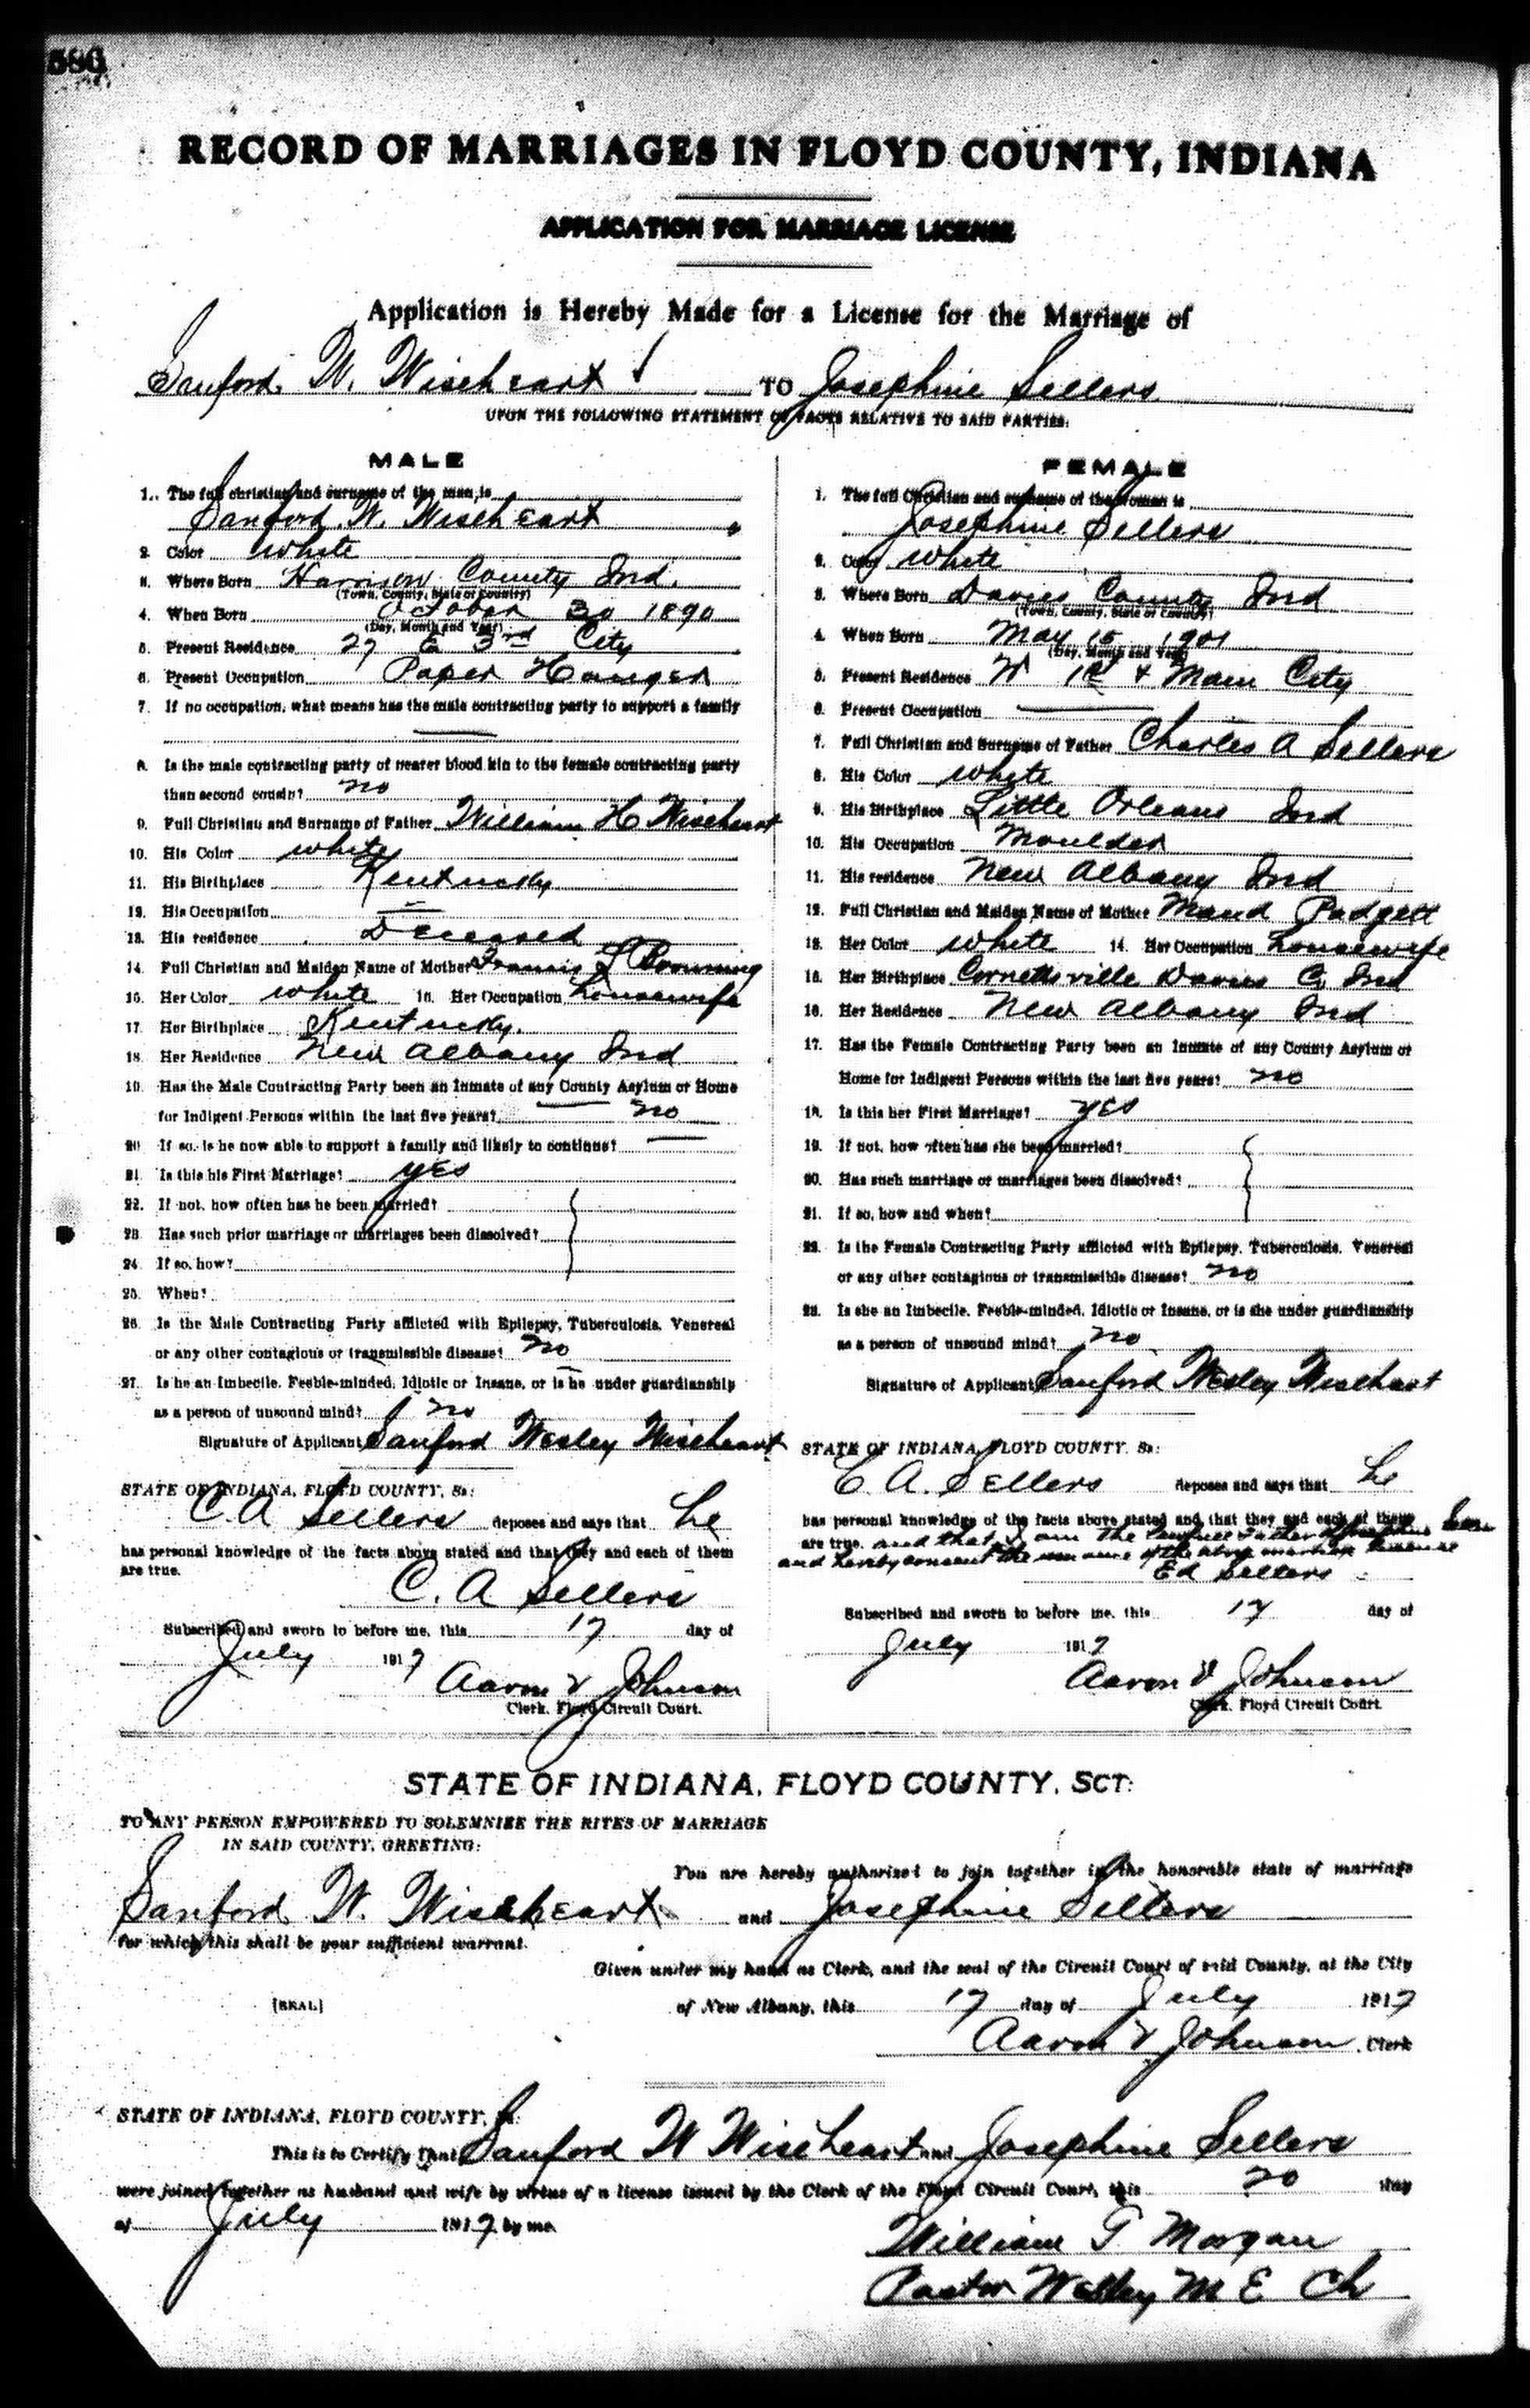 RECORD OF MARRIAGES IN FLOYD COUNTY, INDIANA
APPLICATION FOR MARRIAGE LICENSE
Application is Hereby Made for a License for the Marriage of
Sanford W. Wiseheart TO Josephine Sellers
UPON THE FOLLOWING STATEMENT OF FACTS RELATIVE TO SAID PARTIES:
MALE
1. The full christian and surname of the man is
Sanford W. Wiseheart
2. Color white
3. Where Born Harrison County Ind.
(Town, County, State or Country)
4. When Born October 30 1890
(Day, Month and Year)
5. Present Residence 27 E 3rd City
6. Present Occupation Paper Hanger
7. If no occupation, what means has the male contracting party to support a family
8. Is the male contracting party of nearer blood kin to the female contracting party
than second cousin? no
9. Full Christian and Surname of Father William H Wiseheart
10. His Color white
11. His Birthplace Kentucky
12. His Occupation
13. His residence Deceased
14. Full Christian and Maiden Name of Mother Francis Browning
15. Her Color white 16. Her Occupation housewife
17. Her Birthplace Kentucky.
18. Her Residence New Albany Ind
19. Has the Male Contracting Party been an Inmate of any County Asylum or Home
for Indigent Persons within the last five years? no
20. If so, is he now able to support a family and likely to continue?
21. Is this his First Marriage? yes
22. If not, how often has he been married?
23. Has such prior marriage or marriages been dissolved?
24. If so, how?
25. When?
26. Is the Male Contracting Party afflicted with Epilepsy, Tuberculosis, Venereal
or any other contagious or transmissible disease? no
27. Is he an Imbecile, Feeble-minded, Idiotic or Insane, or is he under guardianship
as a person of unsound mind? no
Signature of Applicant Sanford Wesley Wiseheart
STATE OF INDIANA, FLOYD COUNTY, Ss:
C. A Sellers deposes and says that he
has personal knowledge of the facts above stated and that they and each of them
are true.
C. A Sellers
Subscribed and sworn to before me, this 17 day of
July 1917
Aaron V Johnson
Clerk, Floyd Circuit Court.
FEMALE
1. The full Christian and surname of the woman is
Josephine Sellers
2. Color white
3. Where Born Davies County Ind
(Town, County, State or Country)
4. When Born May 15 1901
(Day, Month and Year)
5. Present Residence W 1st & Main City
6. Present Occupation
7. Full Christian and Surname of Father Charles A Sellers
8. His Color white
9. His Birthplace Little Orleans Ind
10. His Occupation Moulder
11. His residence New Albany Ind
12. Full Christian and Maiden Name of Mother Maud Padgett
13. Her Color white 14. Her Occupation housewife
15. Her Birthplace Cornettsville Davies Co Ind
16. Her Residence New Albany Ind
17. Has the Female Contracting Party been an Inmate of any County Asylum or
Home for Indigent Persons within the last five years? no
18. Is this her First Marriage? yes
19. If not, how often has she been married?
20. Has such marriage or marriages been dissolved?
21. If so, how and when?
22. Is the Female Contracting Party afflicted with Epilepsy, Tuberculosis, Venereal
or any other contagious or transmissible disease? no
23. Is she an Imbecile, Feeble-minded, Idiotic or Insane, or is she under guardianship
as a person of unsound mind? no
Signature of Applicant Sanford Wesley Wiseheart
STATE OF INDIANA, FLOYD COUNTY, Ss:
C. A. Sellers deposes and says that he
has personal knowledge of the facts above stated and that they and each of them
are true. and that I am the lawfull father of Josephine
and hereby consent the of the above marriage license
Ed Sellers
Subscribed and sworn to before me, this 17 day of
July 1917
Aaron V Johnson
Clerk, Floyd Circuit Court.
STATE OF INDIANA, FLOYD COUNTY, SCT:
TO ANY PERSON EMPOWERED TO SOLEMNIZE THE RITES OF MARRIAGE
IN SAID COUNTY, GREETING:
You are hereby authorized to join together in the honorable state of marriage
Sanford W. Wiseheart and Josephine Sellers
for which this shall be your sufficient warrant.
Given under my hand as Clerk, and the seal of the Circuit Court of said County, at the City
[SEAL] of New Albany, this 17 day of July 1917
Aaron V Johnson, Clerk
STATE OF INDIANA, FLOYD COUNTY, Ss:
This is to Certify That Sanford W Wiseheart and Josephine Sellers
were joined together as husband and wife by virtue of a license issued by the Clerk of the Floyd Circuit Court, this 20 day
of July 1917 by me.
William T Morgan
Pastor Wesley M E Ch